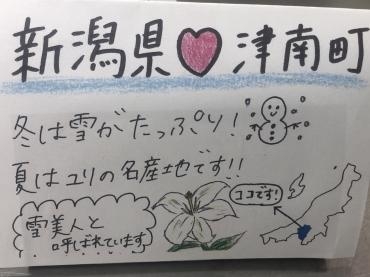 新潟県♡津南町
冬は雪がたっぷり!
夏はユリの名産地です!!
ココです!
雪美人と
呼ばれています